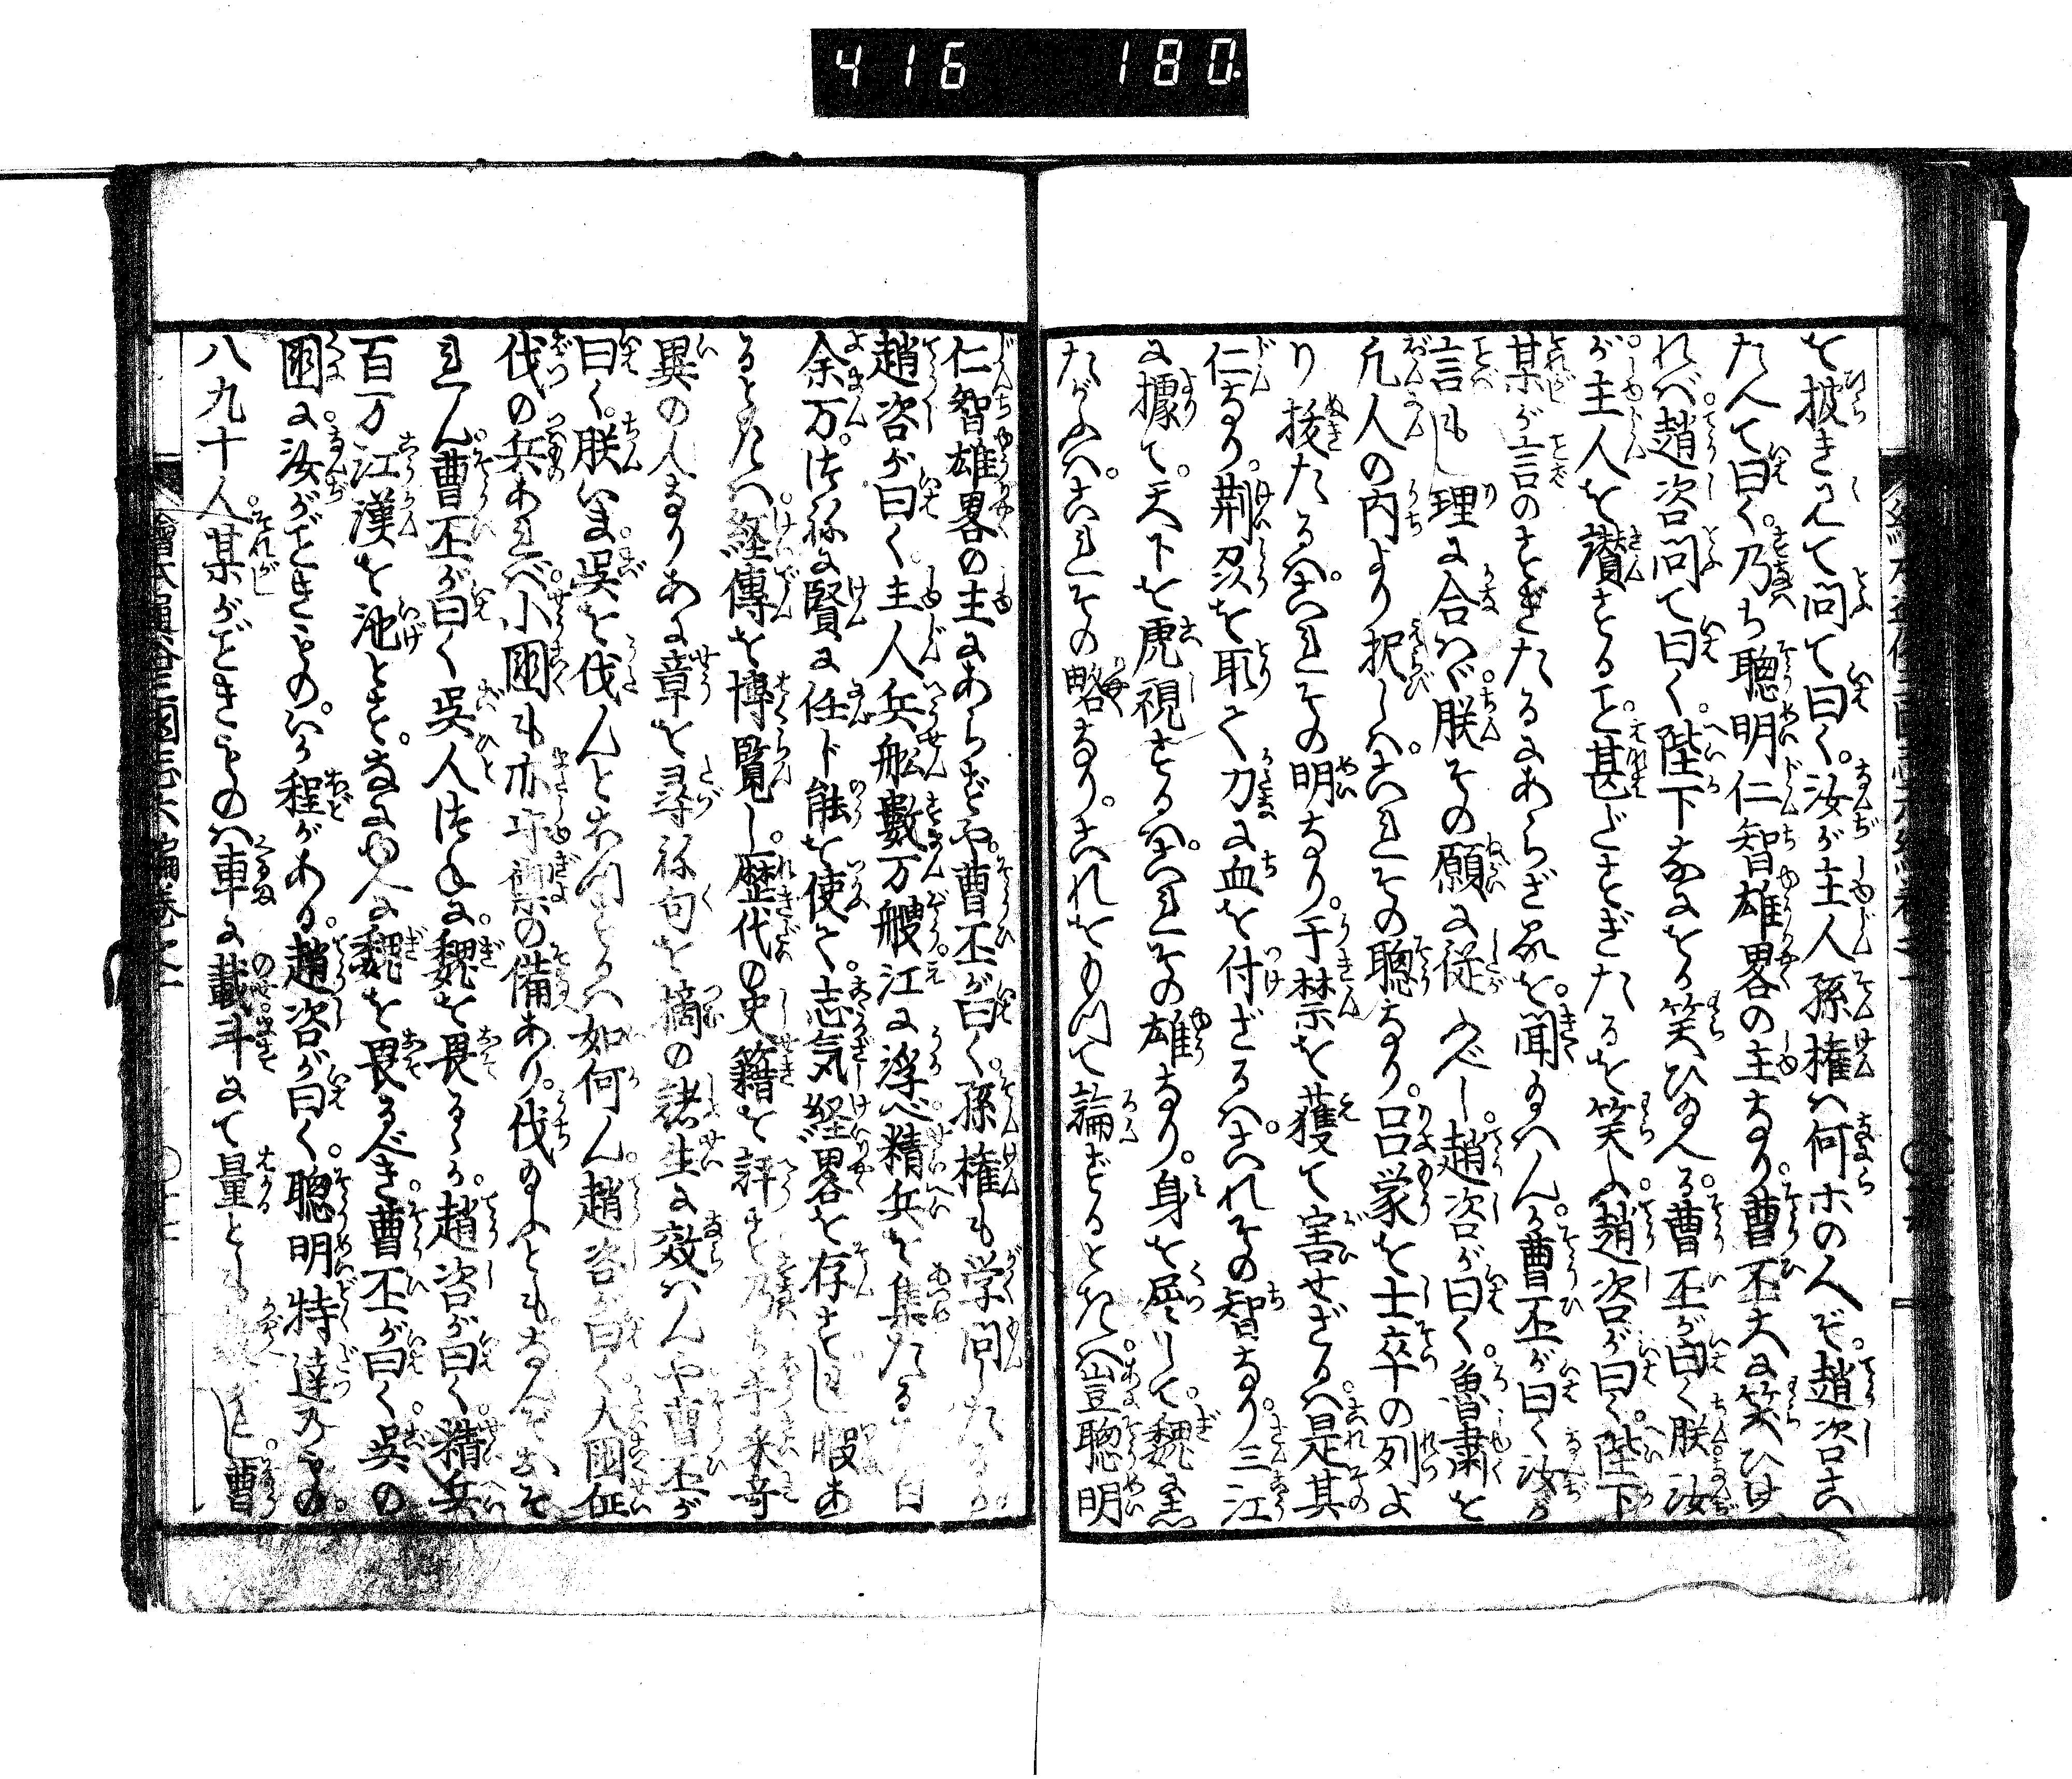 416 180.
を披きみて問て曰く。汝が主人孫権ハ何ホの人ぞ。趙咨こ
たへて曰く。乃ち聰明仁智雄畧の主なり。曹丕大に笑ひけ
れバ趙咨問て曰く。陛下なにをか笑ひ給へる。曹丕が曰く朕汝
が主人を讃することの甚だすぎたるを笑ふ。趙咨が曰く。陛下
某が言のすぎたるにあらざるを。聞給ハんか。曹丕が曰く汝が
言もし理に合ハゞ。朕その願に従ふべし。趙咨が曰く。魯粛を
凡人の内より択しハ。これその聰なり。呂蒙を士卒の列よ
り拔たるハ。これその明なり。于禁を獲て害せざるハ。是其
仁なり。荊州を取て刀に血を付ざるハ。これその智なり。三江
に據て。天下を虎視するハ。これその雄なり。身を屈して。魏に
たがふハ。これその略なり。これをもつて論ずるときハ。豈聰明
仁智雄畧の主にあらずや。曹丕が曰く。孫権も学問したるか
趙咨が曰く。主人兵舩數万艘江に浮べ。精兵を集たる
余万。つねに賢に任ト能を使て。志気経畧を存せし暇あ
るときハ。経傳を博覧し。歴代の史籍を評す。乃ち手采奇
異の人なりあに章を尋ね句を摘の諸生に效ハんや曹丕が
曰く。朕いま。呉を伐んとおもふハ如何ん。趙咨が曰く大國征
伐の兵あれバ。小國も亦守禦の備あり。伐給ふともなんぞおそ
れん。曹丕が曰く呉人つねに。魏を畏るゝか。趙咨が曰く精兵
百万江漢を池とす。なにゆへに魏を畏るべき。曹丕が曰く。呉の
國に。汝がごときもの。いか程かある。趙咨が曰く。聰明特達のもの
八九十人。某がごときものハ車に載斗にて量とも